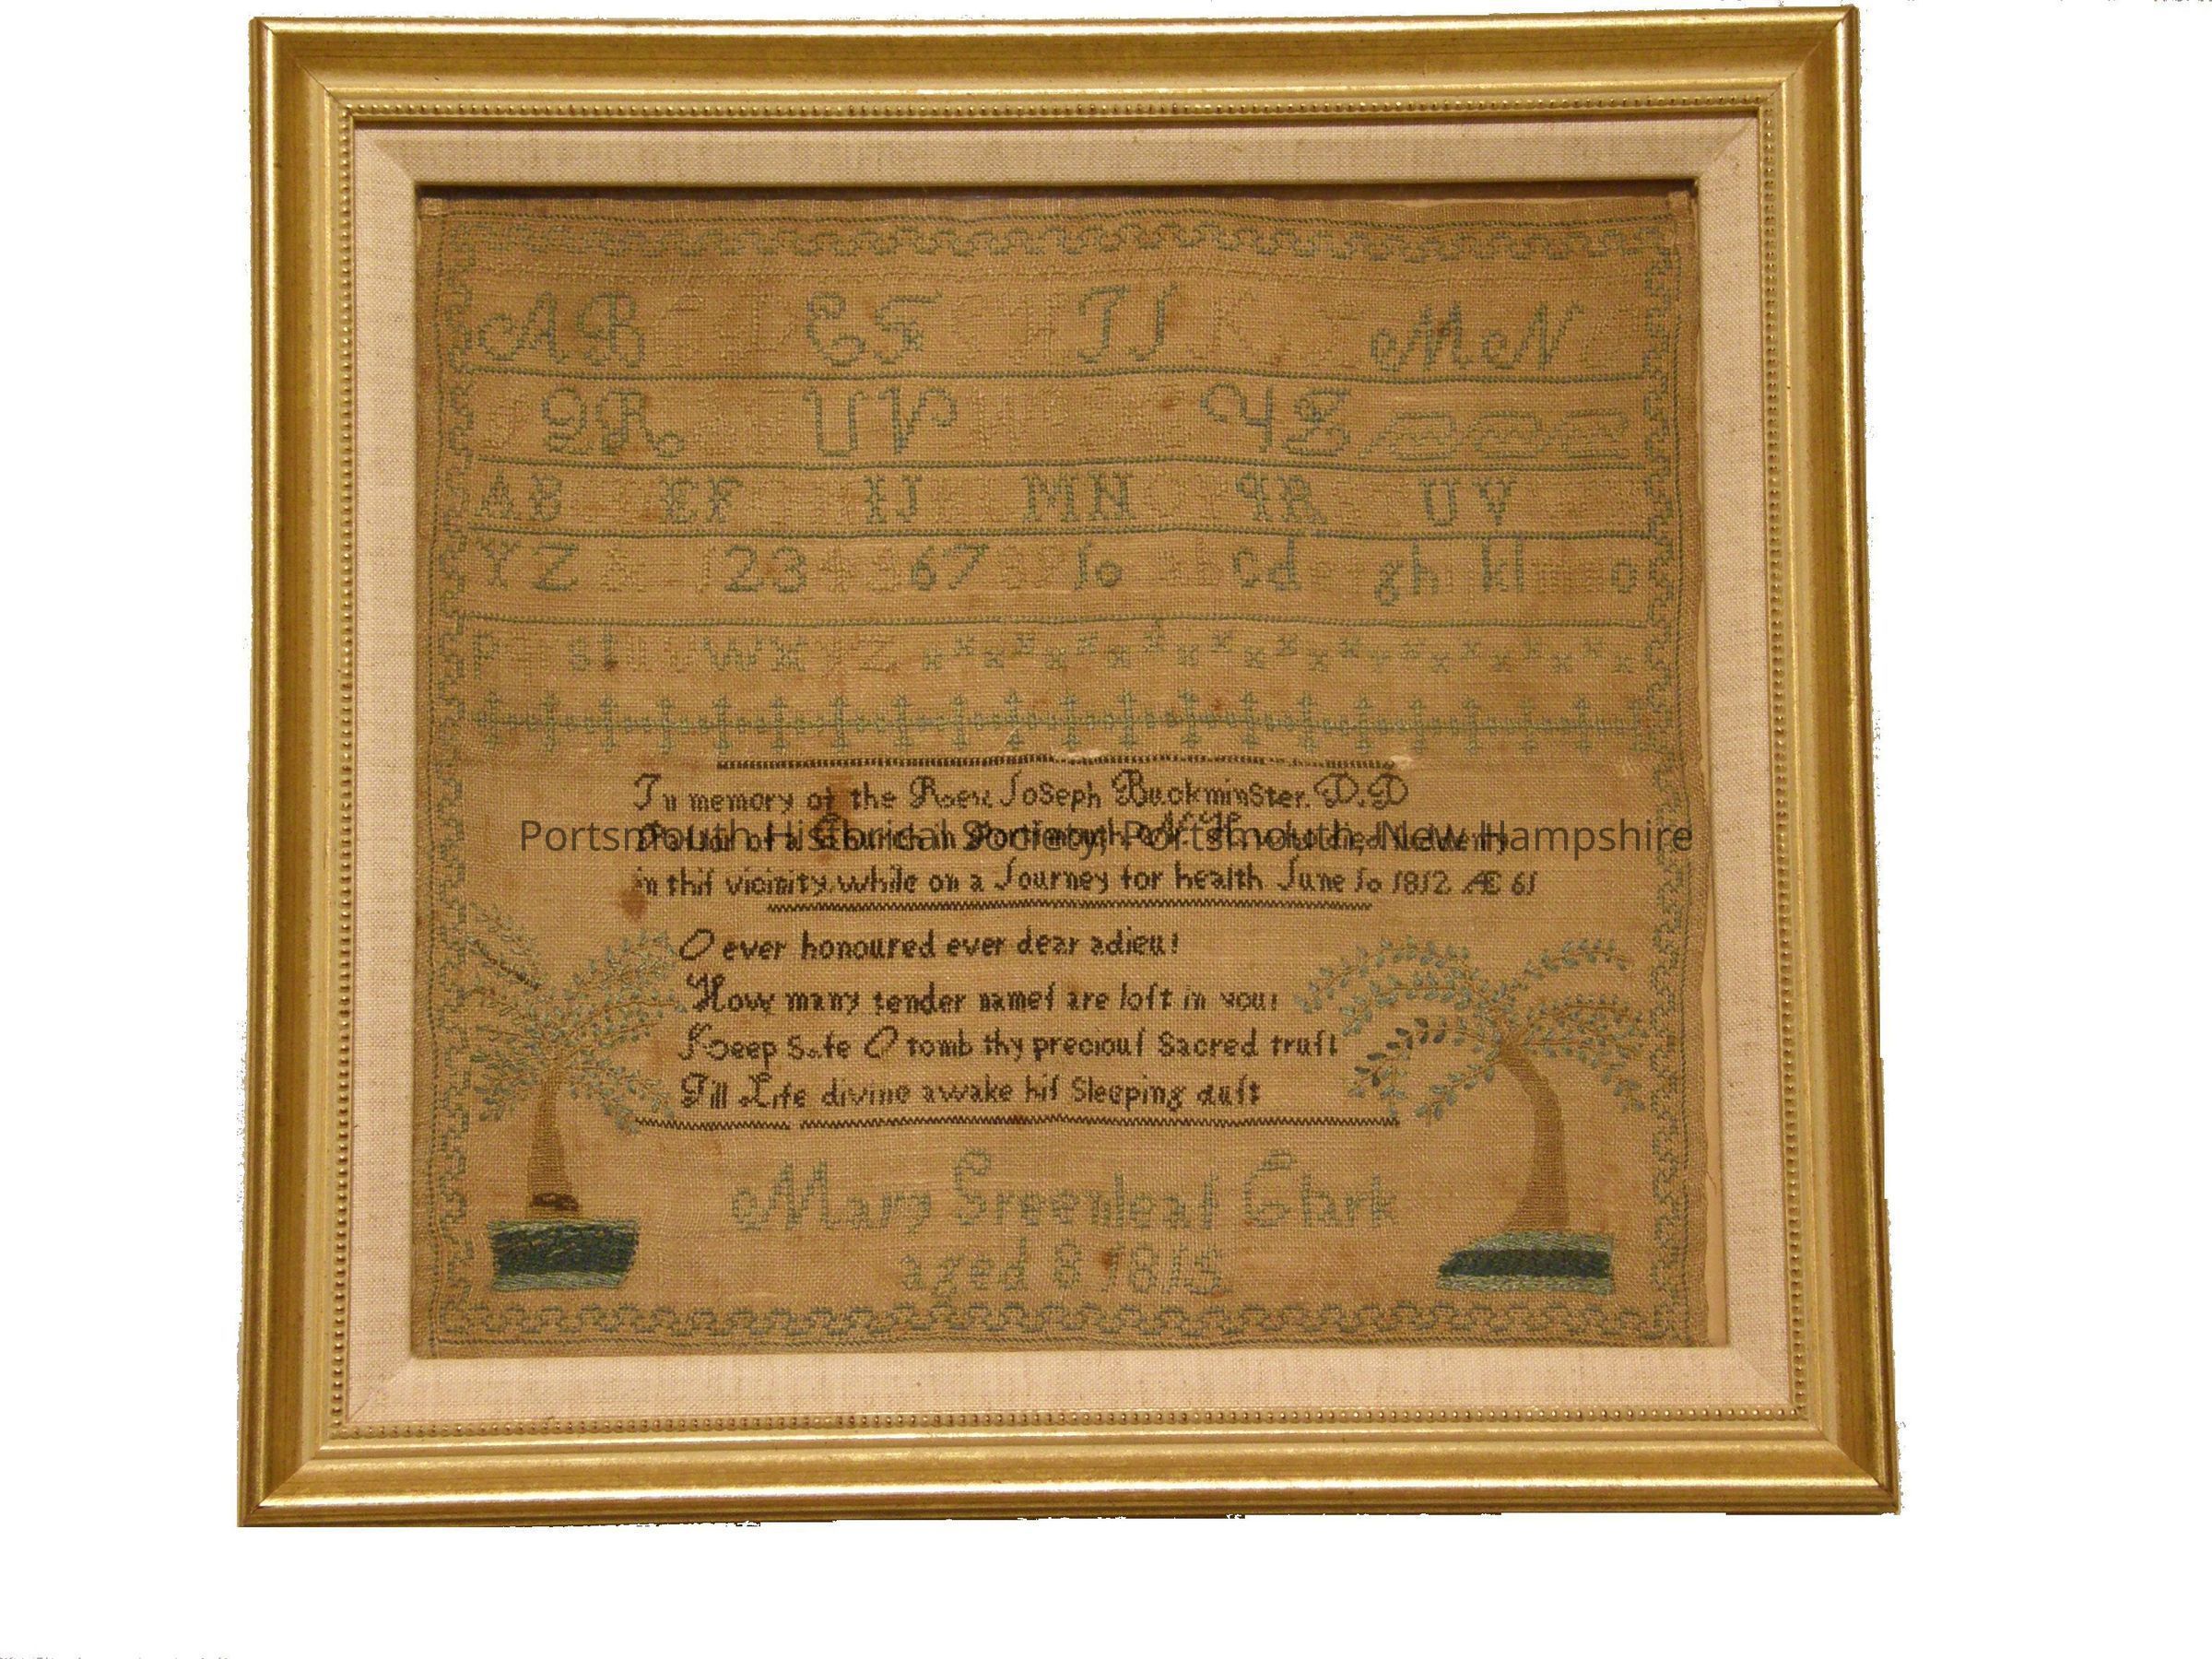 A B C D E F G H I J K L M N O
P Q R S T U V W X Y Z
A B C D E F G H I J K L M N O P R S T U V W X
Y Z & 1 2 3 4 5 6 7 8 9 10 a b c d e f g h i k l m n o
P r s t u v w x y z
In memory of the Rev. Joseph Buckminster. D.D
of a Church in Portsmouth. N. H. who died
in thiſ vicinity. while on a Journey for health June 10 1812 Æ 61
O ever honoured ever dear adieu!
How many tender nameſ are loſt in you!
Keep Safe O tomb thy preciouſ Sacred truſt
Till Life divine awake hiſ Sleeping duſt
Mary Greenleaf Clark
aged 8 1813
Portsmouth Historical Society, Portsmouth, New Hampshire